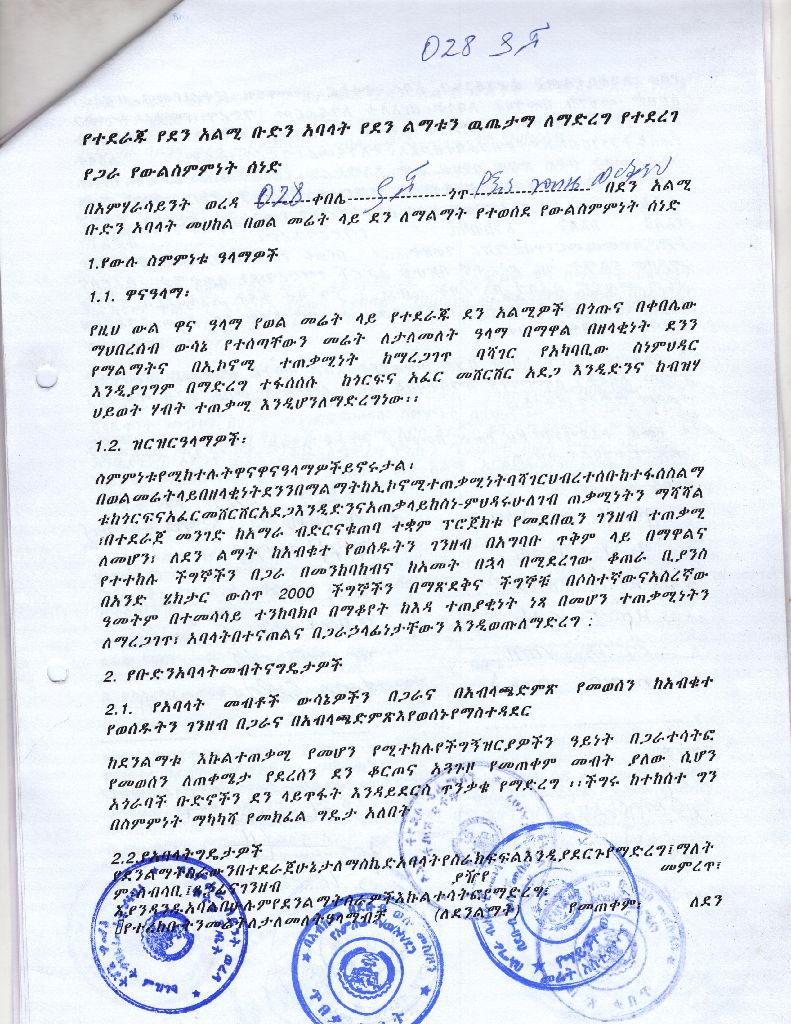 028 ቀ
የተደራጁ የደን አልሚ ቡድን አባላት የደን ልማቱን ዉጤታማ ለማድረግ የተደረገ
የጋራ የውልስምምነት ሰነድ
በአምሃራሳይንት ወረዳ 028 ቀበሌ ጎጥ በደን አልሚ
ቡድን አባላት መሀከል በወል መሬት ላይ ደን ለማልማት የተወሰደ የውልስምምነት ሰነድ
1.የውሉ ስምምነቱ ዓላማዎች
1.1. ዋናዓላማ፡
የዚህ ውል ዋና ዓላማ የወል መሬት ላይ የተደራጁ ደን አልሚዎች በጎጡና በቀበሌው
ማህበረሰብ ውሳኔ የተሰጣቸውን መሬት ለታለመለት ዓላማ በማዋል በዘላቂነት ደንን
የማልማትና በኢኮኖሚ ተጠቃሚነት ከማረጋገጥ ባሻገር የአካባቢው ስነምህዳር
እንዲያገግም በማድረግ ተፋሰሰሱ ከጎርፍና አፈር መሸርሸር አደጋ እንዲድንና ከብዝሃ
ህይወት ሃብት ተጠቃሚ እንዲሆንለማድረግነው፡፡
1.2. ዝርዝርዓላማዎች፡
ስምምነቱየሚከተሉትዋናዋናዓላማዎችይኖሩታል፡
በወልመሬትላይበዘላቂነትደንንበማልማትከኢኮኖሚተጠቃሚነትባሻገርህብረተሰቡከተፋሰስልማ
ቱከጎርፍናአፈርመሸርሸርአደጋእንዲድንናአጠቃላይከስነ-ምህዳሩሁለገብ ጠቃሚነትን ማሻሻል
፣በተደራጀ መንገድ ከአማራ ብድርናቁጠባ ተቋም ፕሮጀክቱ የመደበዉን ገንዘብ ተጠቃሚ
ለመሆን፣ ለደን ልማት ከአብቁተ የወሰዱትን ገንዘብ በአግባቡ ጥቅም ላይ በማዋልና
የተተከሉ ችግኞችን በጋራ በመንከባከብና ከአመት በኋላ በሚደረገው ቆጠራ ቢያንስ
በአንድ ሄክታር ውስጥ 2000 ችግኞችን በማጽደቅና ችግኞቹ በሶስተኛውናአስረኛው
ዓመትም በተመሳሳይ ተንከባክቦ በማቆየት ከእዳ ተጠያቂነት ነጻ በመሆን ተጠቃሚነትን
ለማረጋገጥ፣ አባላትበተናጠልና በጋራኃላፊነታቸውን እንዲወጡለማድረግ ፡
2. የቡድንአባላትመብትናግዴታዎች
2.1. የአባላት መብቶች ውሳኔዎችን በጋራና በአብላጫድምጽ የመወሰን ከአብቁተ
የወሰዱትን ገንዘብ በጋራና በአብላጫድምጽእየወሰኑየማስተዳደር
ከደንልማቱ እኩልተጠቃሚ የመሆን የሚተከሉየችግኝዝርያዎችን ዓይነት በጋራተሳትፎ
የመወሰን ለጠቀሜታ የደረሰን ደን ቆርጦና አጓጉዞ የመጠቀም መብት ያለው ሲሆን
አጎራባች ቡድኖችን ደን ላይጥፋት እንዳይደርስ ጥንቃቄ የማድረግ ፡፡ችግሩ ከተከሰተ ግን
በስምምነት ማካካሻ የመክፈል ግዴታ አለበት
2.2.የአባላትግዴታዎች
የደንልማትስራውንበተደራጀሁኔታለማስኬድአባላትየስራክፍፍልእንዲያደርጉየማድረግ፤ማለት
ም ያዥየ መምረጥ፣
እያንዳንዱአባልበሁሉምየደንልማትስራዎችእኩልተሳትፎየማድረግ፤
(ለደንልማት) የመጠቀም፣ ለደን